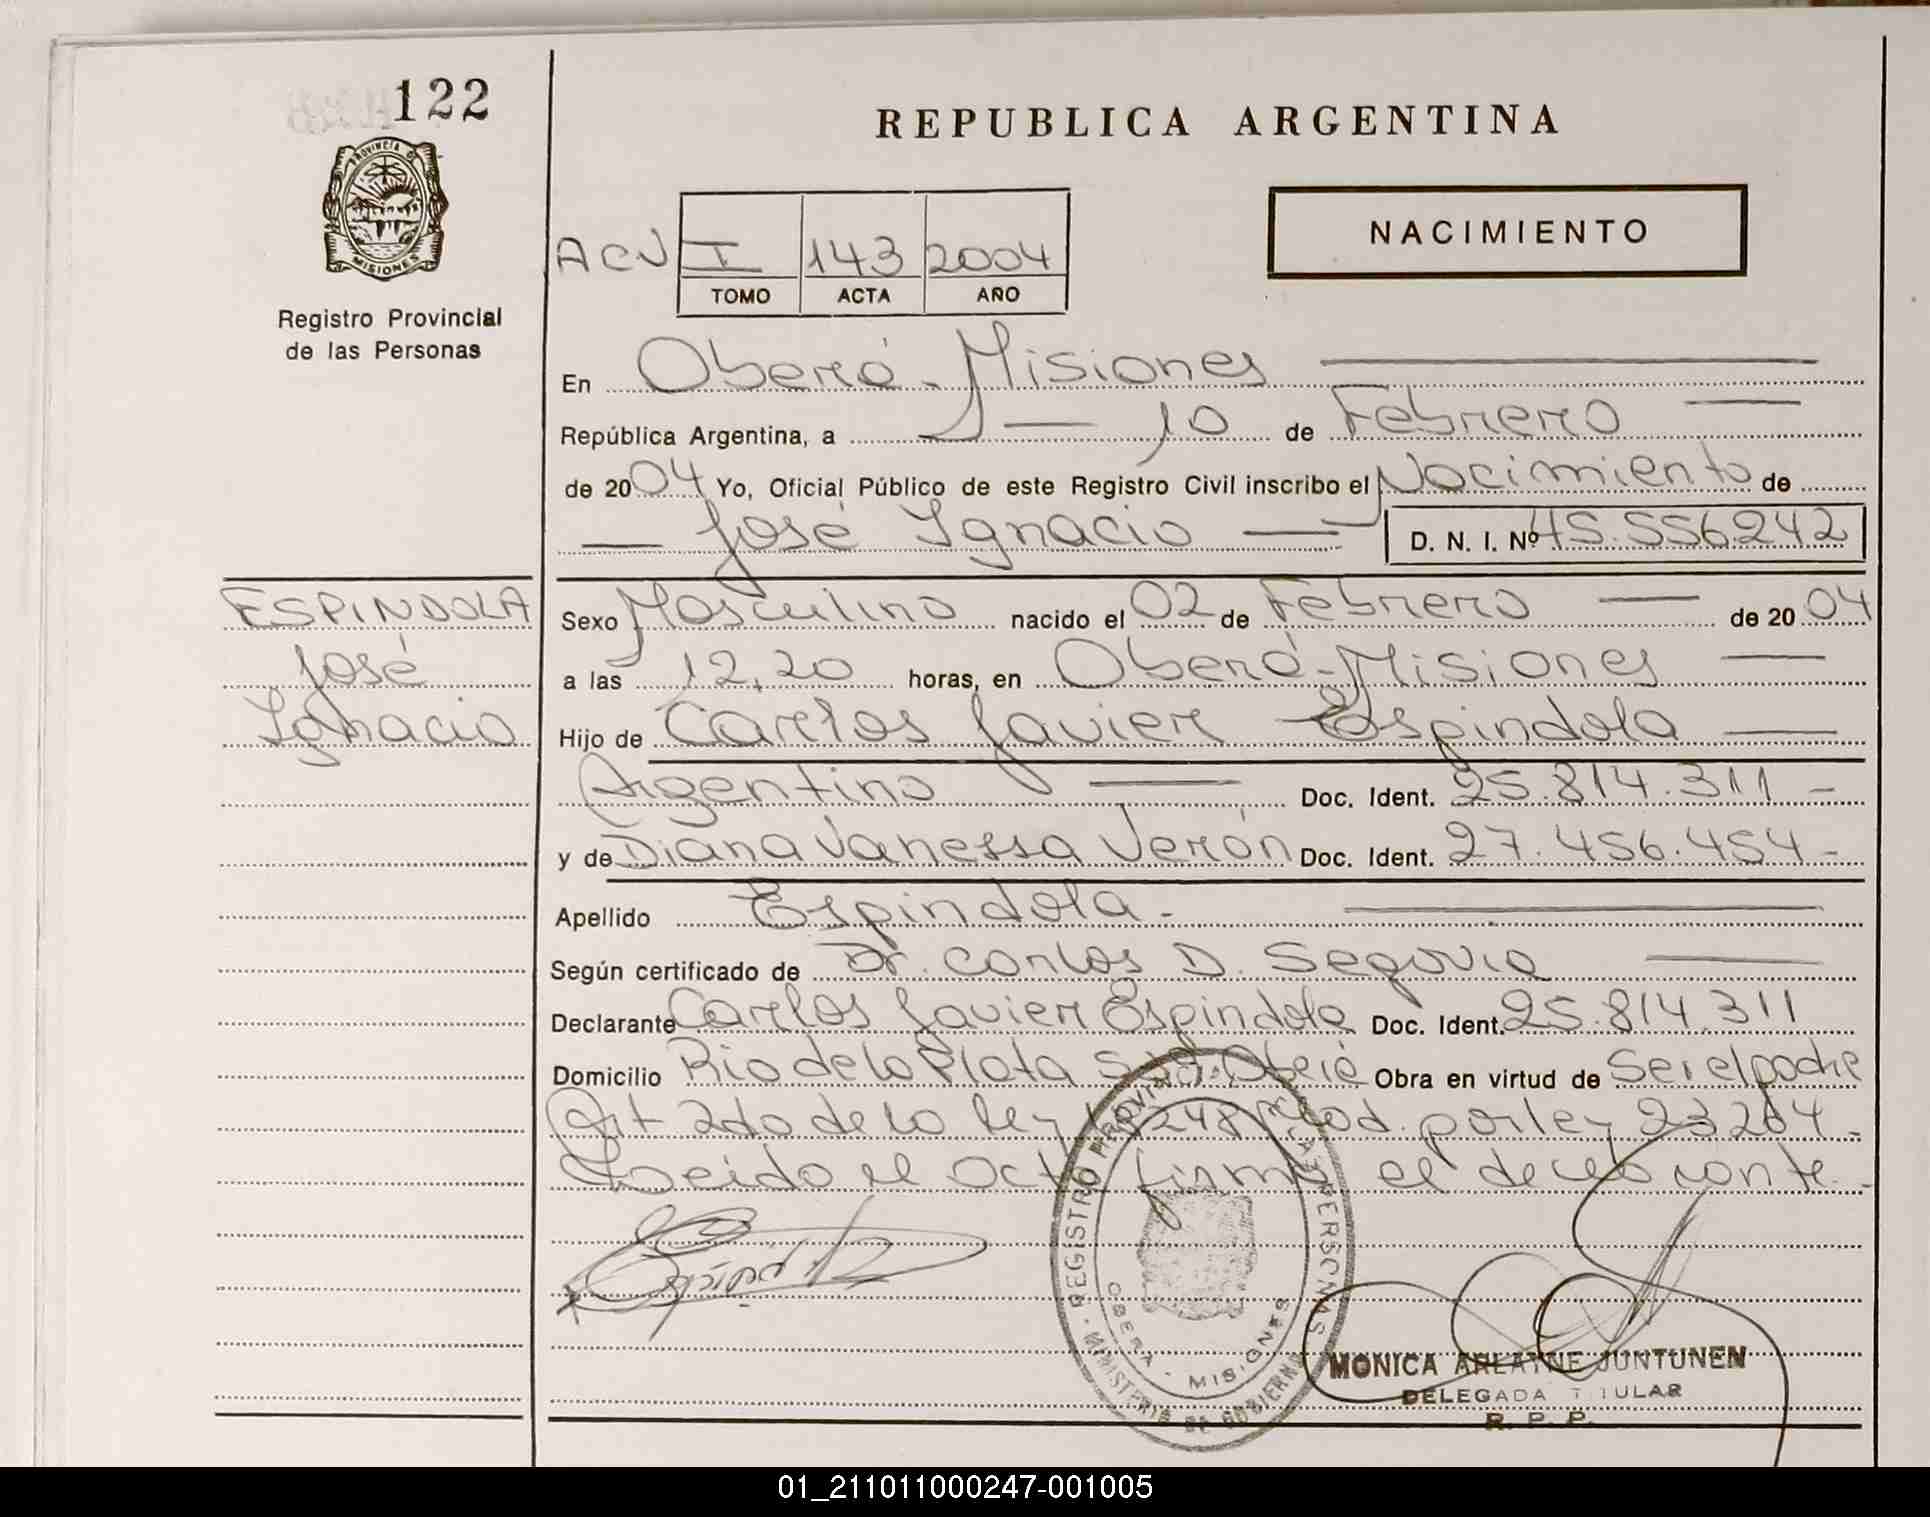 122
PROVINCIA DE
MISIONES
Registro Provincial
de las Personas
REPUBLICA ARGENTINA
NACIMIENTO
ACN I 143 2004
TOMO ACTA AÑO
En Oberá - Misiones
República Argentina, a 10 de Febrero
de 2004 Yo, Oficial Público de este Registro Civil inscribo el Nacimiento de
José Ignacio D. N. I. Nº 45.556.242
ESPINDOLA
José
Ignacio
Sexo Masculino nacido el 02 de Febrero de 2004
a las 12,20 horas, en Oberá - Misiones
Hijo de Carlos Javier Espindola
Argentino Doc. Ident. 25.814.311 -
y de Diana Vanessa Verón Doc. Ident. 27.456.454 -
Apellido Espindola -
Según certificado de Dr. Carlos D. Segovia
Declarante Carlos Javier Espindola Doc. Ident. 25.814.311
Domicilio Rio de la Plata S/Nº Oberá Obra en virtud de Ser el padre
Art 2do de la ley 18248 Mod. por ley 23264 -
Leido el Acta firma el declarante -
REGISTRO PROVINCIAL DE LAS PERSONAS
OBERA - MISIONES
MINISTERIO DE GOBIERNO
MONICA ARLAYNE JUNTUNEN
DELEGADA TITULAR
R. P. P.
01_211011000247-001005